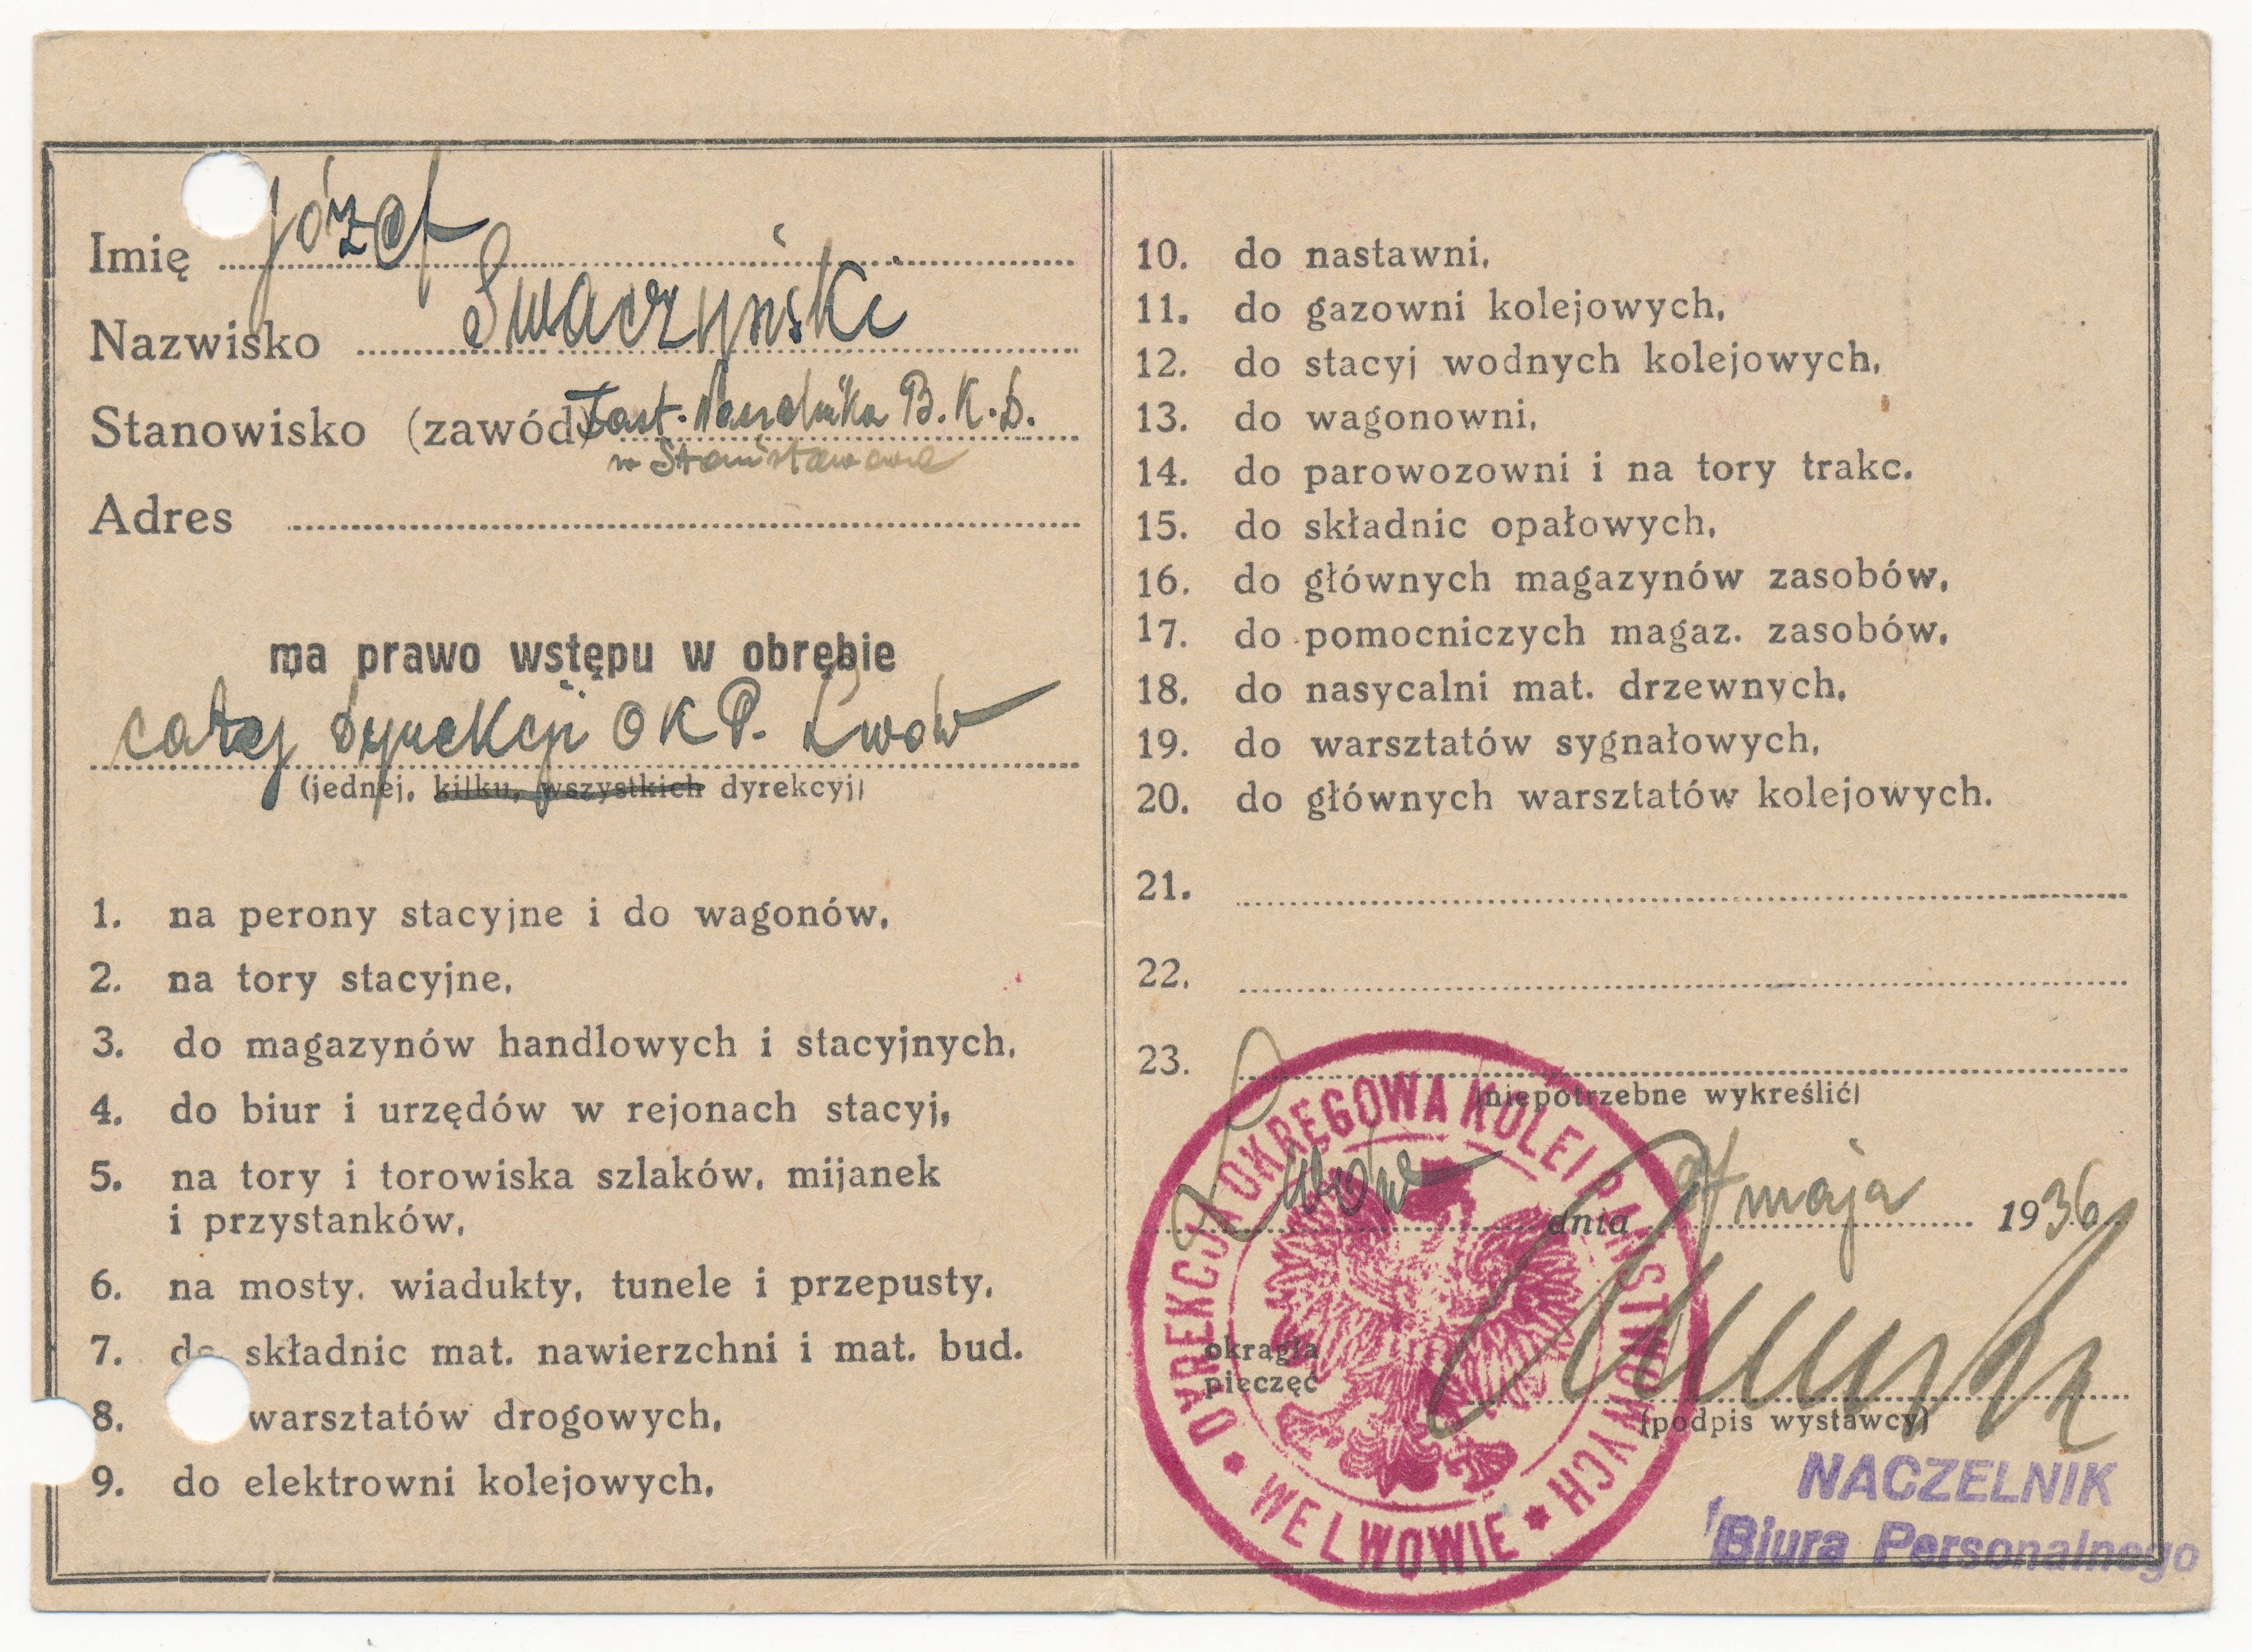 Imię Józef
Nazwisko Smaczyński
Stanowisko (zawód) Zast. Naczelnika B. K. D.
w Stanisławowie
Adres
ma prawo wstępu w obrębie
całej Dyrekcji O K P. Lwów
(jednej, kilku, wszystkich dyrekcyj)
1. na perony stacyjne i do wagonów,
2. na tory stacyjne,
3. do magazynów handlowych i stacyjnych,
4. do biur i urzędów w rejonach stacyj,
5. na tory i torowiska szlaków, mijanek
i przystanków,
6. na mosty, wiadukty, tunele i przepusty,
7. do składnic mat. nawierzchni i mat. bud.
8. warsztatów drogowych,
9. do elektrowni kolejowych,
10. do nastawni,
11. do gazowni kolejowych,
12. do stacyj wodnych kolejowych,
13. do wagonowni,
14. do parowozowni i na tory trakc.
15. do składnic opałowych,
16. do głównych magazynów zasobów,
17. do pomocniczych magaz. zasobów,
18. do nasycalni mat. drzewnych,
19. do warsztatów sygnałowych,
20. do głównych warsztatów kolejowych.
21.
22.
23.
(niepotrzebne wykreślić)
Lwów dnia maja 1936
DYREKCJA OKRĘGOWA KOLEI PAŃSTWOWYCH
WE LWOWIE
okrągła
pieczęć
(podpis wystawcy)
NACZELNIK
Biura Personalnego